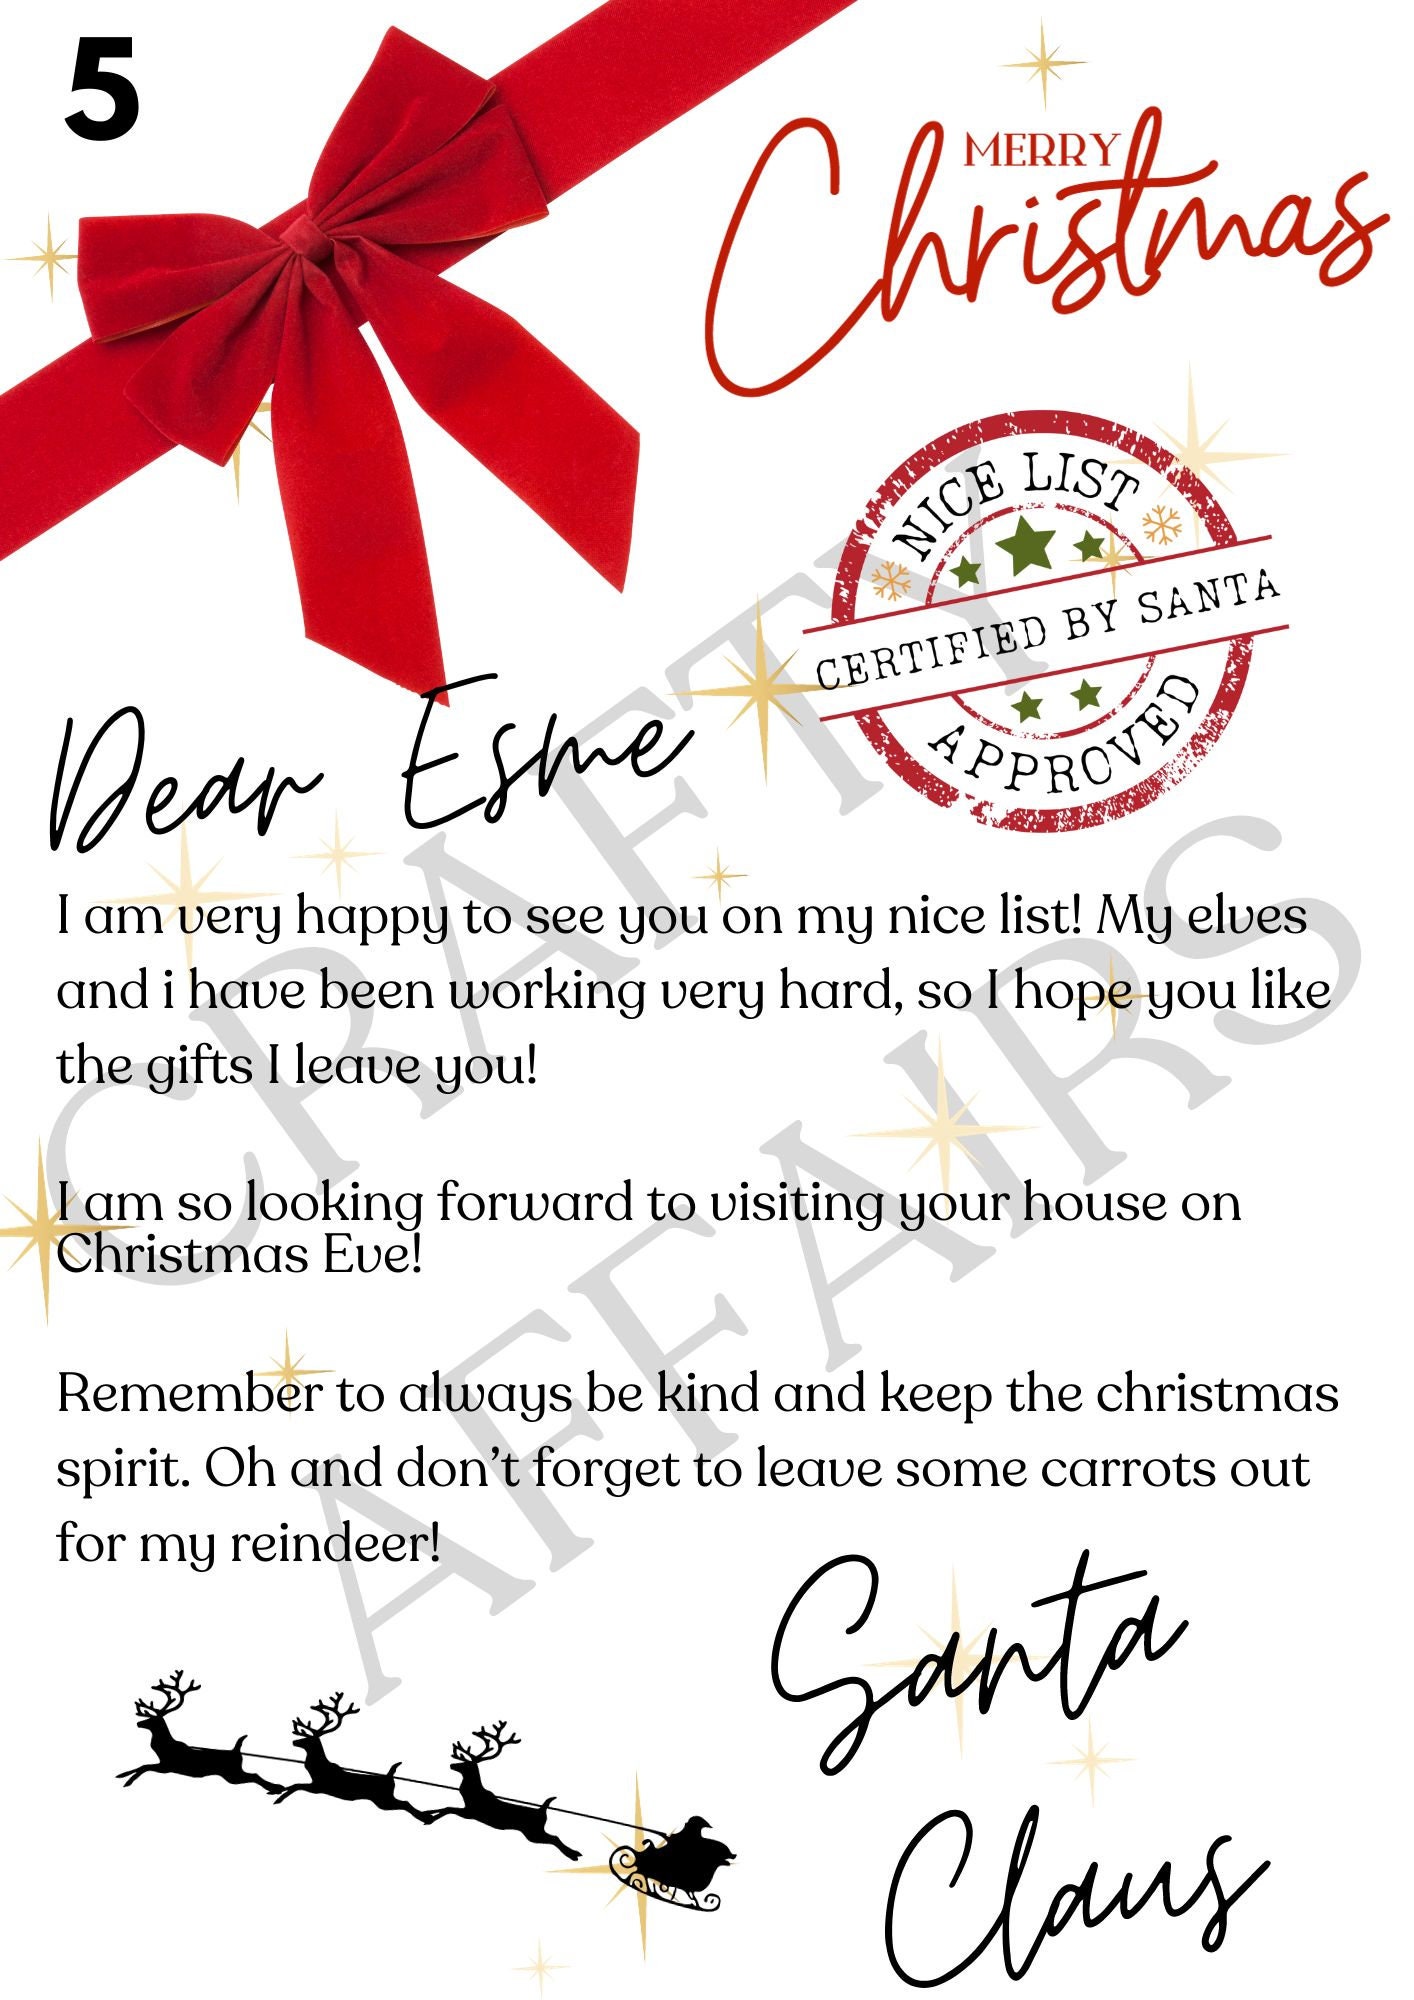 5
MERRY
Christmas
NICE LIST
CERTIFIED BY SANTA
APPROVED
Dear Esme
I am very happy to see you on my nice list! My elves
and i have been working very hard, so I hope you like
the gifts I leave you!
I am so looking forward to visiting your house on
Christmas Eve!
Remember to always be kind and keep the christmas
spirit. Oh and don’t forget to leave some carrots out
for my reindeer!
Santa
Claus
CRAFTY
AFFAIRS